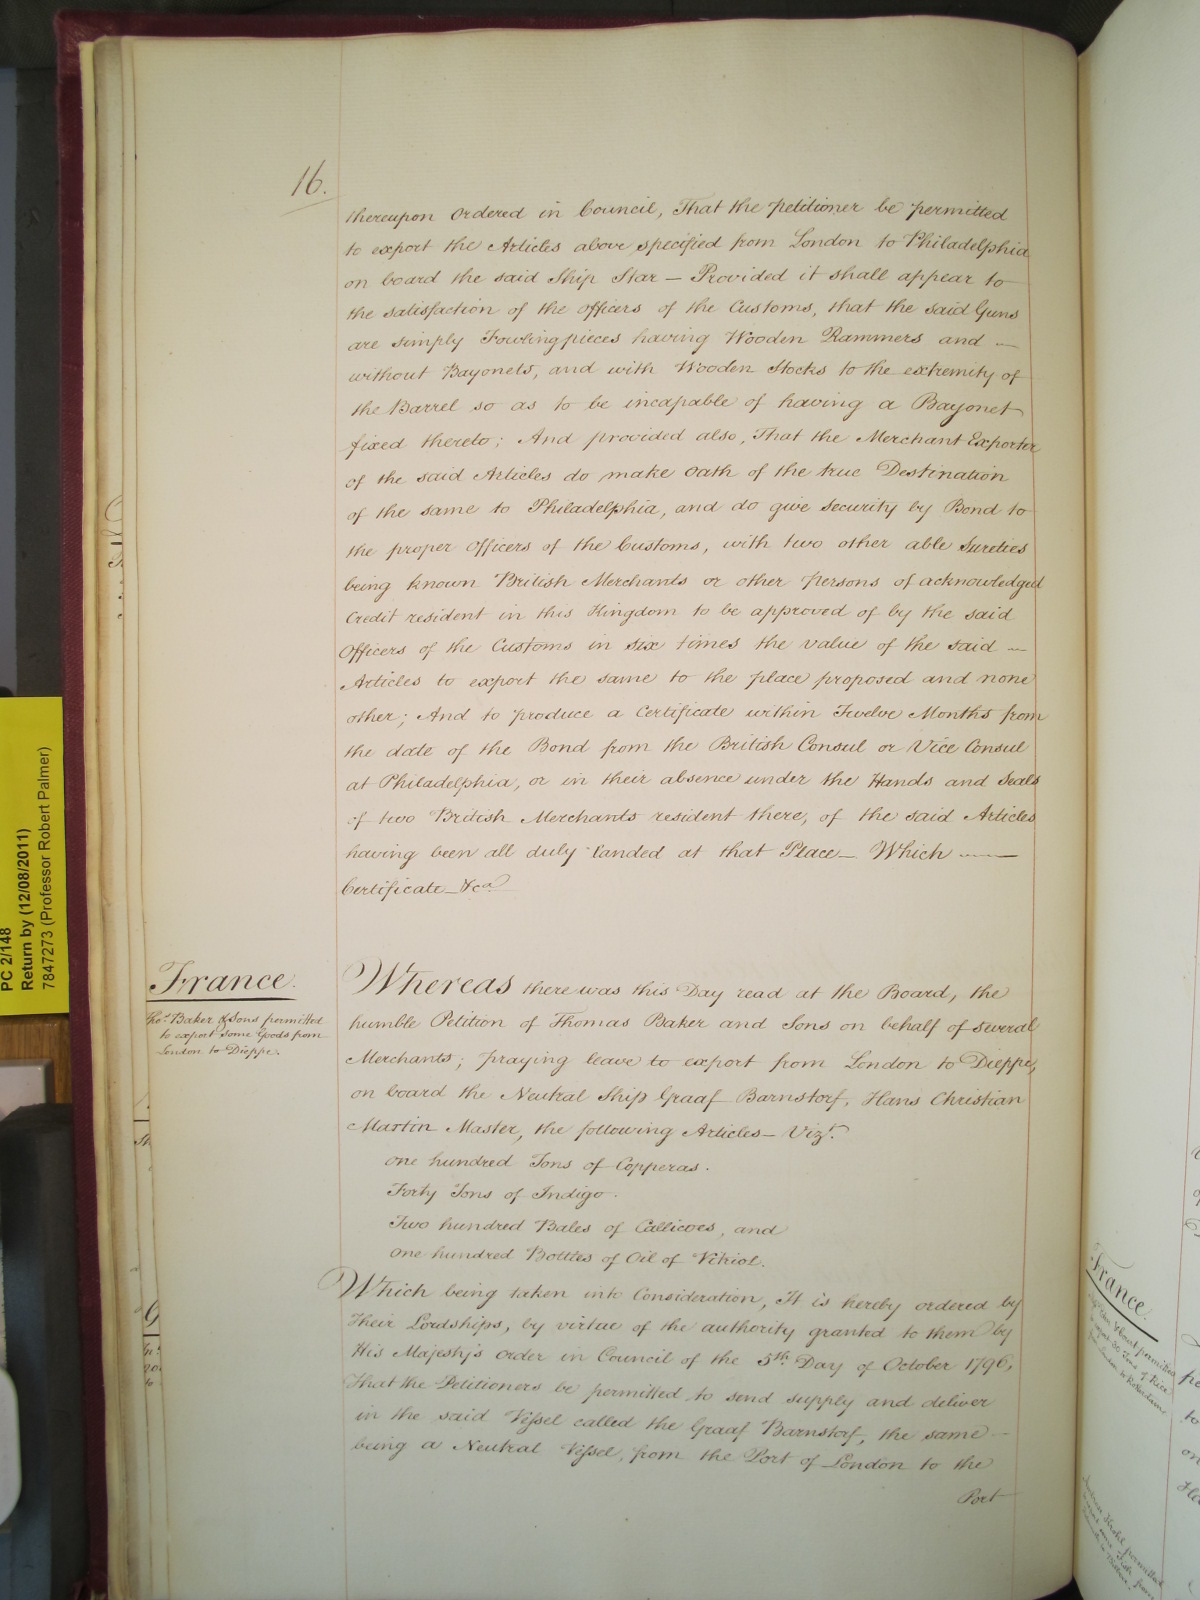 16.
thereupon ordered in Council, That the petitioner be permitted
to export the Articles above specified from London to Philadelphia
on board the said Ship Star — Provided it shall appear to
the satisfaction of the officers of the Customs, that the said Guns
are simply Fowlingpieces having Wooden Rammers and —
without Bayonets, and with Wooden Stocks to the extremity of
the Barrel so as to be incapable of having a Bayonet
fixed thereto; And provided also, That the Merchant Exporter
of the said Articles do make Oath of the true Destination
of the same to Philadelphia, and do give security by Bond to
the proper Officers of the Customs, with two other able Sureties
being known British Merchants or other persons of acknowledged
Credit resident in this Kingdom to be approved of by the said
Officers of the Customs in six times the value of the said —
Articles to export the same to the place proposed and none
other; And to produce a Certificate within Twelve Months from
the date of the Bond from the British Consul or Vice Consul
at Philadelphia, or in their absence under the Hands and Seals
of two British Merchants resident there, of the said Articles
having been all duly landed at that Place — Which —
Certificate &ca
France.
Thos. Baker & Sons permitted
to export some Goods from
London to Dieppe.
Whereas there was this Day read at the Board, the
humble Petition of Thomas Baker and Sons on behalf of several
Merchants; praying leave to export from London to Dieppe,
on board the Neutral Ship Graaf Barnstorf, Hans Christian
Martin Master, the following Articles — Vizt.
one hundred Tons of Copperas.
Forty Tons of Indigo.
Two hundred Bales of Callicoes, and
one hundred Bottles of Oil of Vitriol.
Which being taken into Consideration, It is hereby ordered by
Their Lordships, by virtue of the authority granted to them by
His Majesty's Order in Council of the 5th Day of October 1796,
That the Petitioners be permitted to send supply and deliver
in the said Vessel called the Graaf Barnstorf, the same —
being a Neutral Vessel, from the Port of London to the
Port
PC 2/148
Return by (12/08/2011)
7847273 (Professor Robert Palmer)
France.
permitted